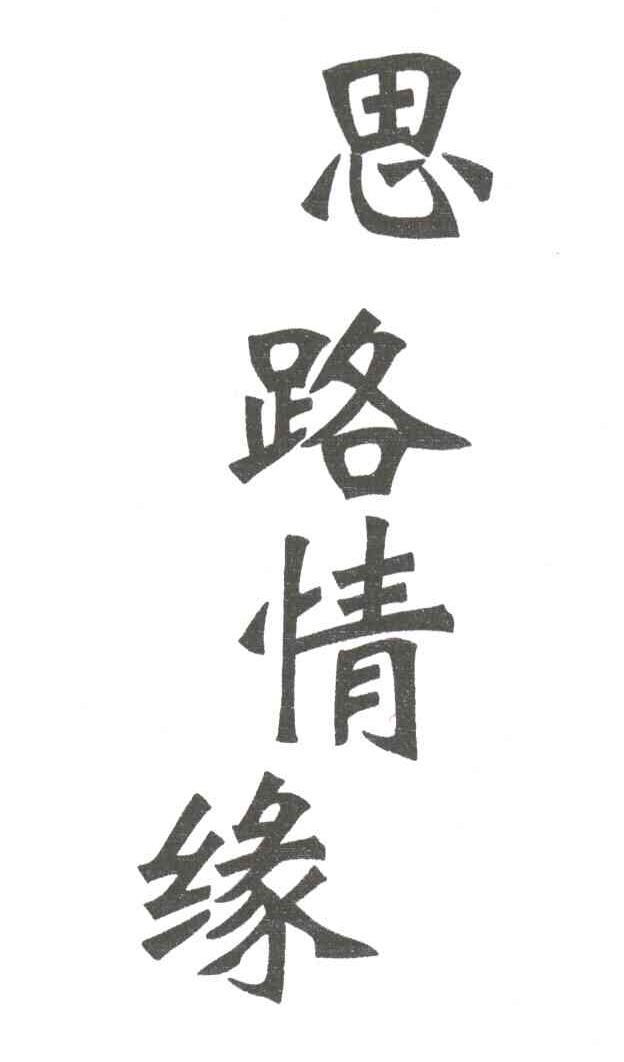 思路情缘